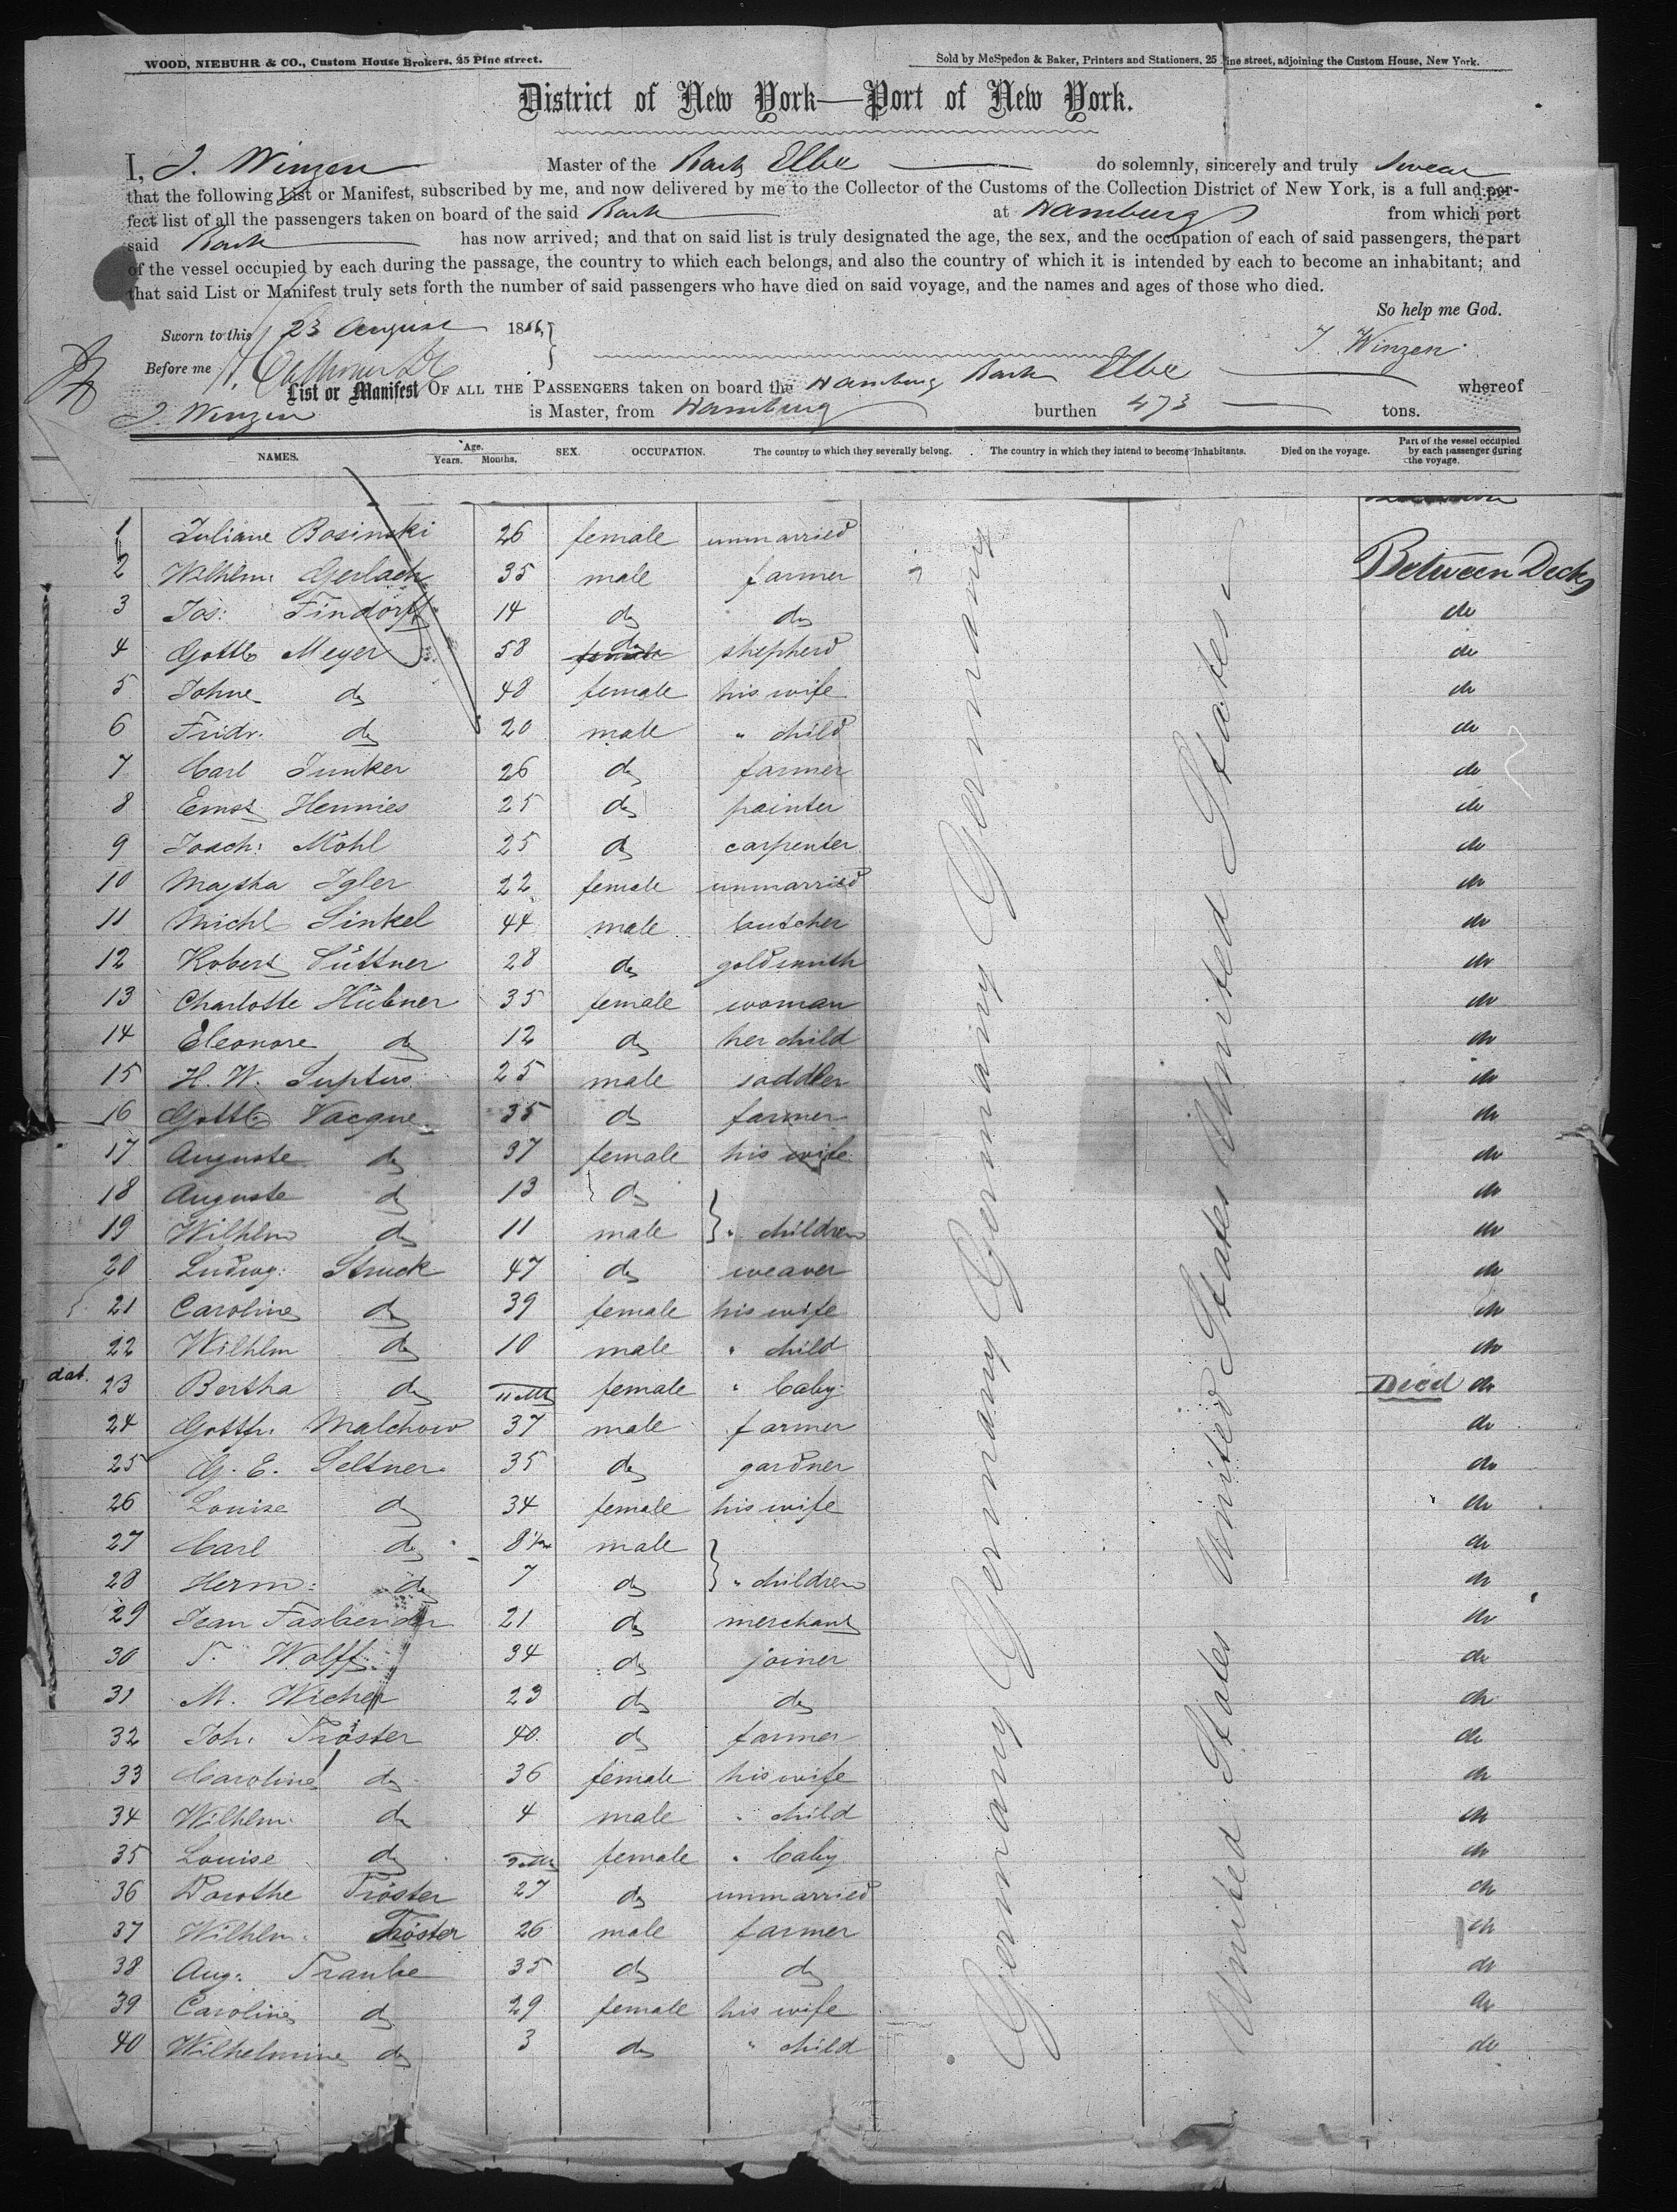 WOOD, NIEBUHR & CO., Custom House Brokers, 25 Pine street.
Sold by McSpedon & Baker, Printers and Stationers, 25 Pine street, adjoining the Custom House, New York.
District of New York—Port of New York.
I, J. Winzen Master of the Bark Elbe do solemnly, sincerely and truly swear
that the following List or Manifest, subscribed by me, and now delivered by me to the Collector of the Customs of the Collection District of New York, is a full and per-
fect list of all the passengers taken on board of the said Bark at Hamburg from which port
said Bark has now arrived; and that on said list is truly designated the age, the sex, and the occupation of each of said passengers, the part
of the vessel occupied by each during the passage, the country to which each belongs, and also the country of which it is intended by each to become an inhabitant; and
that said List or Manifest truly sets forth the number of said passengers who have died on said voyage, and the names and ages of those who died.
So help me God.
Sworn to this 23 August 1866
J. Winzen
Before me
List or Manifest OF ALL THE PASSENGERS taken on board the Hamburg Bark Elbe whereof
J. Winzen is Master, from Hamburg burthen 473 tons.
NAMES. Age. Years. Months. SEX. OCCUPATION. The country to which they severally belong. The country in which they intend to become inhabitants. Died on the voyage. Part of the vessel occupied by each passenger during the voyage.
1 Juliane Bosinski 26 female unmarried
2 Wilhlm: Gerlach 35 male farmer Between Deck
3 Jos: Findorff 14 do do do
4 Gottlb Meyer 58 do shepherd do
5 Johne do 48 female his wife do
6 Fridr. do 20 male " child do
7 Carl Junker 26 do farmer do
8 Ernst Hennies 25 do painter do
9 Joach: Möhl 25 do carpenter do
10 Magtha Igler 22 female unmarried do
11 Michl Sinkel 44 male butcher do
12 Robert Süttner 28 do goldsmith do
13 Charlotte Hübner 35 female woman do
14 Eleonore do 12 do her child do
15 H. W. Suptus 25 male saddler do
16 Gottlb Vacque 35 do farmer do
17 Auguste do 37 female his wife do
18 Auguste do 13 do do
19 Wilhlm do 11 male " children do
20 Ludwg: Struck 47 do weaver do
21 Caroline do 39 female his wife do
22 Wilhlm do 10 male " child do
dat. 23 Bertha do 11 Mt female " baby Died do
24 Gottfr. Malchow 37 male farmer do
25 G. E. Seltner 35 do gardner do
26 Louise do 34 female his wife do
27 Carl do 8 1/2 male do
28 Herm: do 7 do " children do
29 Jean Fasbender 21 do merchant do
30 F. Wolff 34 do joiner do
31 M. Wicher 23 do do do
32 Joh. Tröster 40 do farmer do
33 Caroline do 36 female his wife do
34 Wilhlm. do 4 male " child do
35 Louise do female " baby do
36 Dorothe Tröster 27 do unmarried do
37 Wilhlm: Tröster 26 male farmer do
38 Aug: Traube 35 do do do
39 Caroline do 29 female his wife do
40 Wilhelmine do 3 do " child do
Germany Germany Germany Germany
United States United States United States